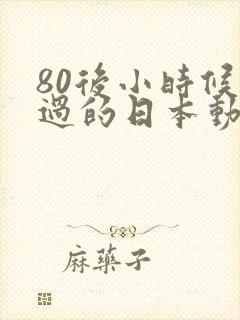 80後小時候
過的日本動
麻藥子